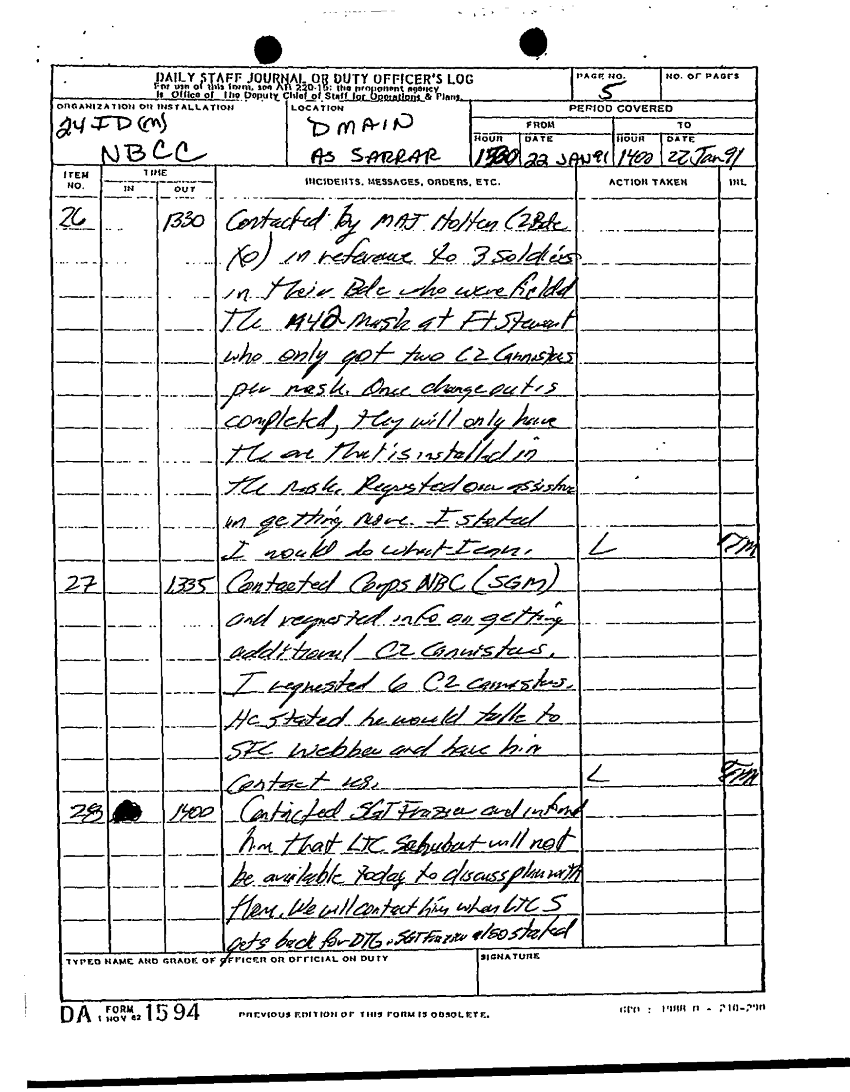 DAILY STAFF JOURNAL OR DUTY OFFICER'S LOG
For use of this form, see AR 220-15; the proponent agency
is Office of The Deputy Chief of Staff for Operations & Plans.
PAGE NO.
5
NO. OF PAGES
ORGANIZATION OR INSTALLATION
24 ID (M)
NBCC
LOCATION
DMAIN
AS SARRAR
PERIOD COVERED
FROM
TO
HOUR
DATE
HOUR
DATE
1330
22 JAN 91
1400
22 Jan 91
ITEM NO.
TIME
IN
OUT
INCIDENTS, MESSAGES, ORDERS, ETC.
ACTION TAKEN
INL
26 1330 Contacted by MAJ Holten (2Bde
XO) in reference to 3 soldiers
in their Bde who were fielded
the M42 Mask at Ft Stewart
who only got two C2 Cannisters
per mask. Once change out is
completed, they will only have
the one that is installed in
the mask. Requested our assistance
in getting more. I stated
I would do what I can. L
27 1335 Contacted Corps NBC (SGM)
and requested info on getting
additional C2 Cannisters.
I requested 6 C2 cannisters.
He stated he would talk to
SFC Webber and have him
contact us. L
28 1400 Contacted SGT Frazier and
him that LTC will not
be available today to discuss plan with
them. We will contact him when LTC S
gets back for DTG. SGT Frazier also stated
TYPED NAME AND GRADE OF OFFICER OR OFFICIAL ON DUTY
SIGNATURE
DA FORM 1594
1 NOV 62
PREVIOUS EDITION OF THIS FORM IS OBSOLETE.